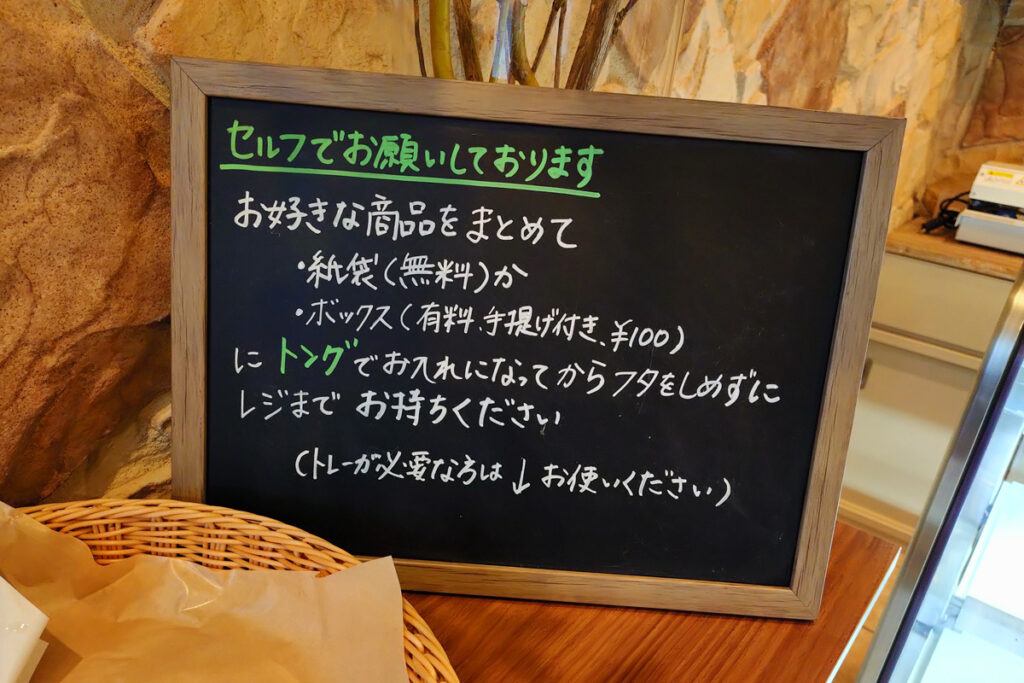 セルフでお願いしております
お好きな商品をまとめて
・紙袋(無料)か
・ボックス(有料、手提げ付き、¥100)
にトングでお入れになってからフタをしめずに
レジまでお持ちください
(トレーが必要な方は↓お使いください)